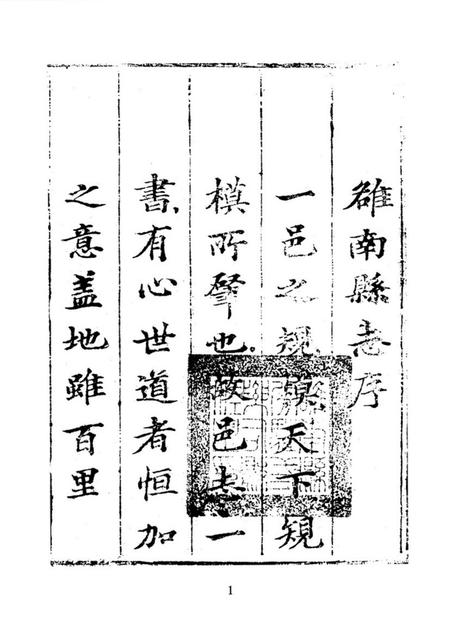 雒南縣志序
一邑之規模天下規
模所肇也故邑志一
書有心世道者恒加
之意盖地雖百里
1